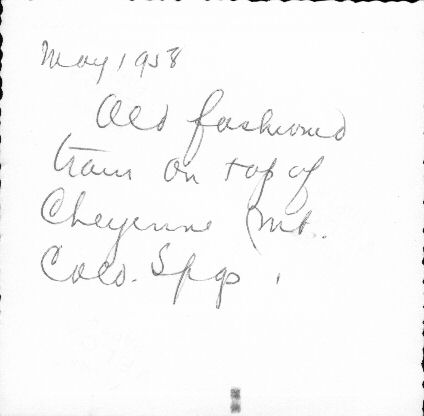 May 1958
Old fashioned
train on top of
Cheyenne Mt.
Colo. Spgs.